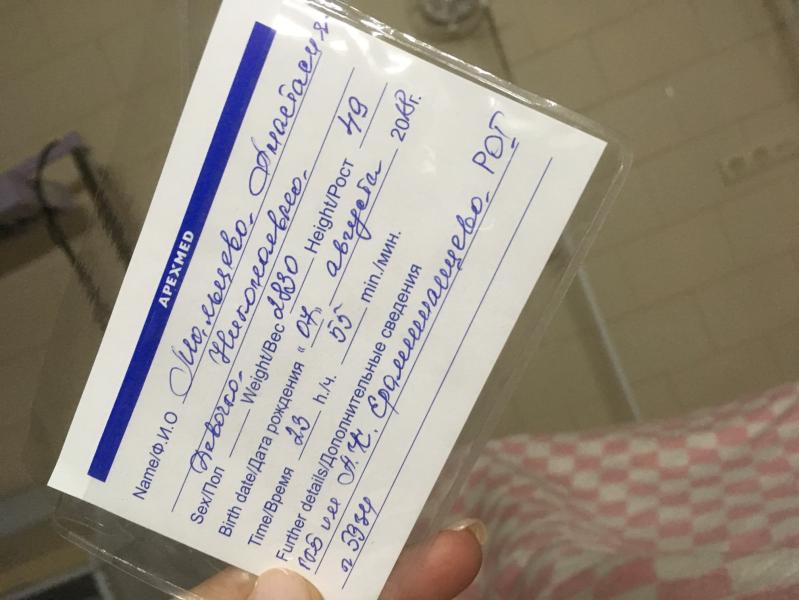 APEXMED
Name/Ф.И.О Анастасия
Николаевна.
Sex/Пол Девочка. Weight/Вес 2830 Height/Рост 49
Birth date/Дата рождения « 07 » августа 2018г.
Time/Время 23 h/ч. 55 min./мин.
Further details/Дополнительные сведения
ГКБ им А.К. Ерамишанцева. РОГ